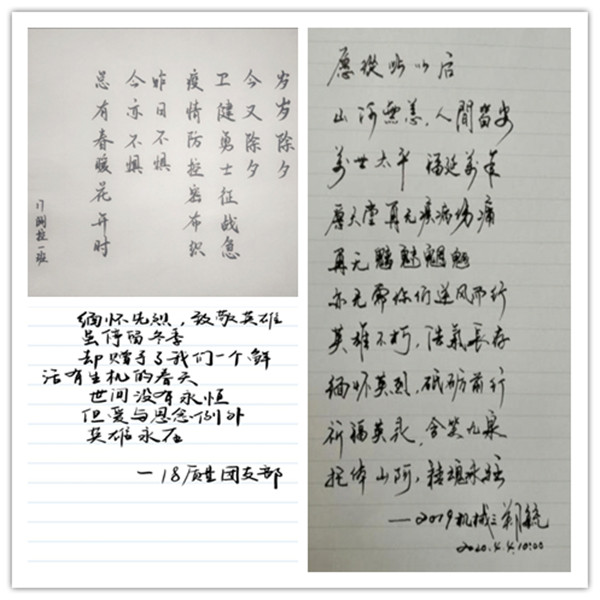 岁岁除夕
今又除夕
卫健勇士征战急
疫情防控密布织
昨日不惧
今亦不惧
总有春暖花开时
17测控一班
缅怀先烈，致敬英雄
虽停留冬季
却赠予了我们一个鲜
活有生机的春天
世间没有永恒
但爱与思念例外
英雄永在
—18质量团支部
愿從此以后
山河無恙，人間皆安
萬世太平 福延萬年
愿天堂再无疾病伤痛
再无魑魅魍魉
亦无需你们逆风而行
英雄不朽，浩氣長存
缅怀英烈，砥砺前行
祈福英灵，含笑九泉
托体山阿，精魂永驻
——2019机械三
2020.4.4.10:00